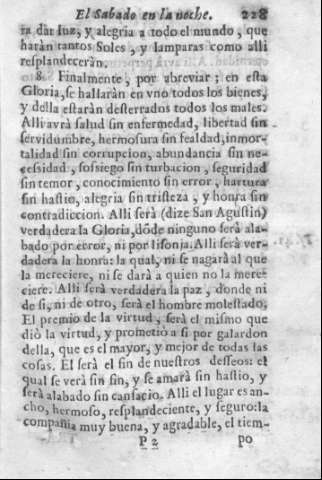 El Sabado en la noche. 228
ra dar luz, y alegria a todo el mundo, que
haràn tantos Soles, y lamparas como alli
resplandeceràn.
8. Finalmente, por abreviar; en esta
Gloria, se hallaràn en vno todos los bienes,
y della estaràn desterrados todos los males.
Alli avrà salud sin enfermedad, libertad sin
servidumbre, hermosura sin fealdad, inmor-
talidad sin corrupcion, abundancia sin ne-
cessidad, sossiego sin turbacion, seguridad
sin temor, conocimiento sin error, hartura
sin hastio, alegria sin tristeza, y honra sin
contradiccion. Alli serà (dize San Agustin)
verdadera la Gloria, dõde ninguno serà ala-
bado por error, ni por lisonja. Alli serà ver-
dadera la honra: la qual, ni se nagarà al que
la mereciere, ni se darà a quien no la mere-
ciere. Alli serà verdadera la paz, donde ni
de si, ni de otro, serà el hombre molestado.
El premio de la virtud, serà el mismo que
diò la virtud, y prometiò a si por galardon
della, que es el mayor, y mejor de todas las
cosas. El serà el fin de nuestros desseos: el
qual se verà sin sin, y se amarà sin hastio, y
serà alabado sin cansacio. Alli el lugar es an-
cho, hermoso, resplandeciente, y seguro: la
compañia muy buena, y agradable, el tiem-
P 2 po